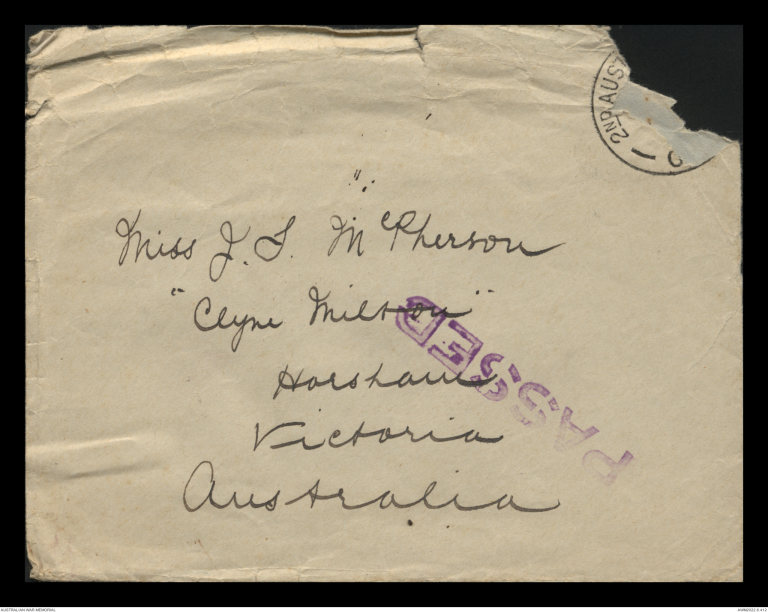 2ND AUST
Miss J. S. McPherson
"Clyne Milton"
Horsham
Victoria
Australia
PASSED
AUSTRALIAN WAR MEMORIAL